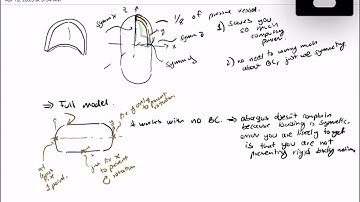 Apr 12, 2023 at 9:54 AM
symm x
z
y
x
symm z
symm y
1/8 of pressure vessel.
1) saves you so much computing power.
2) no need to worry much about BC, just use symmetry.
⇒ Full model.
fix y only to prevent rotation
* works with no BC.
→ abaqus doesn't complain because loading is symmetric,
error you are likely to get
is that you are not
preventing rigid body motion
at least fix 1 point.
just fix x to prevent rotation